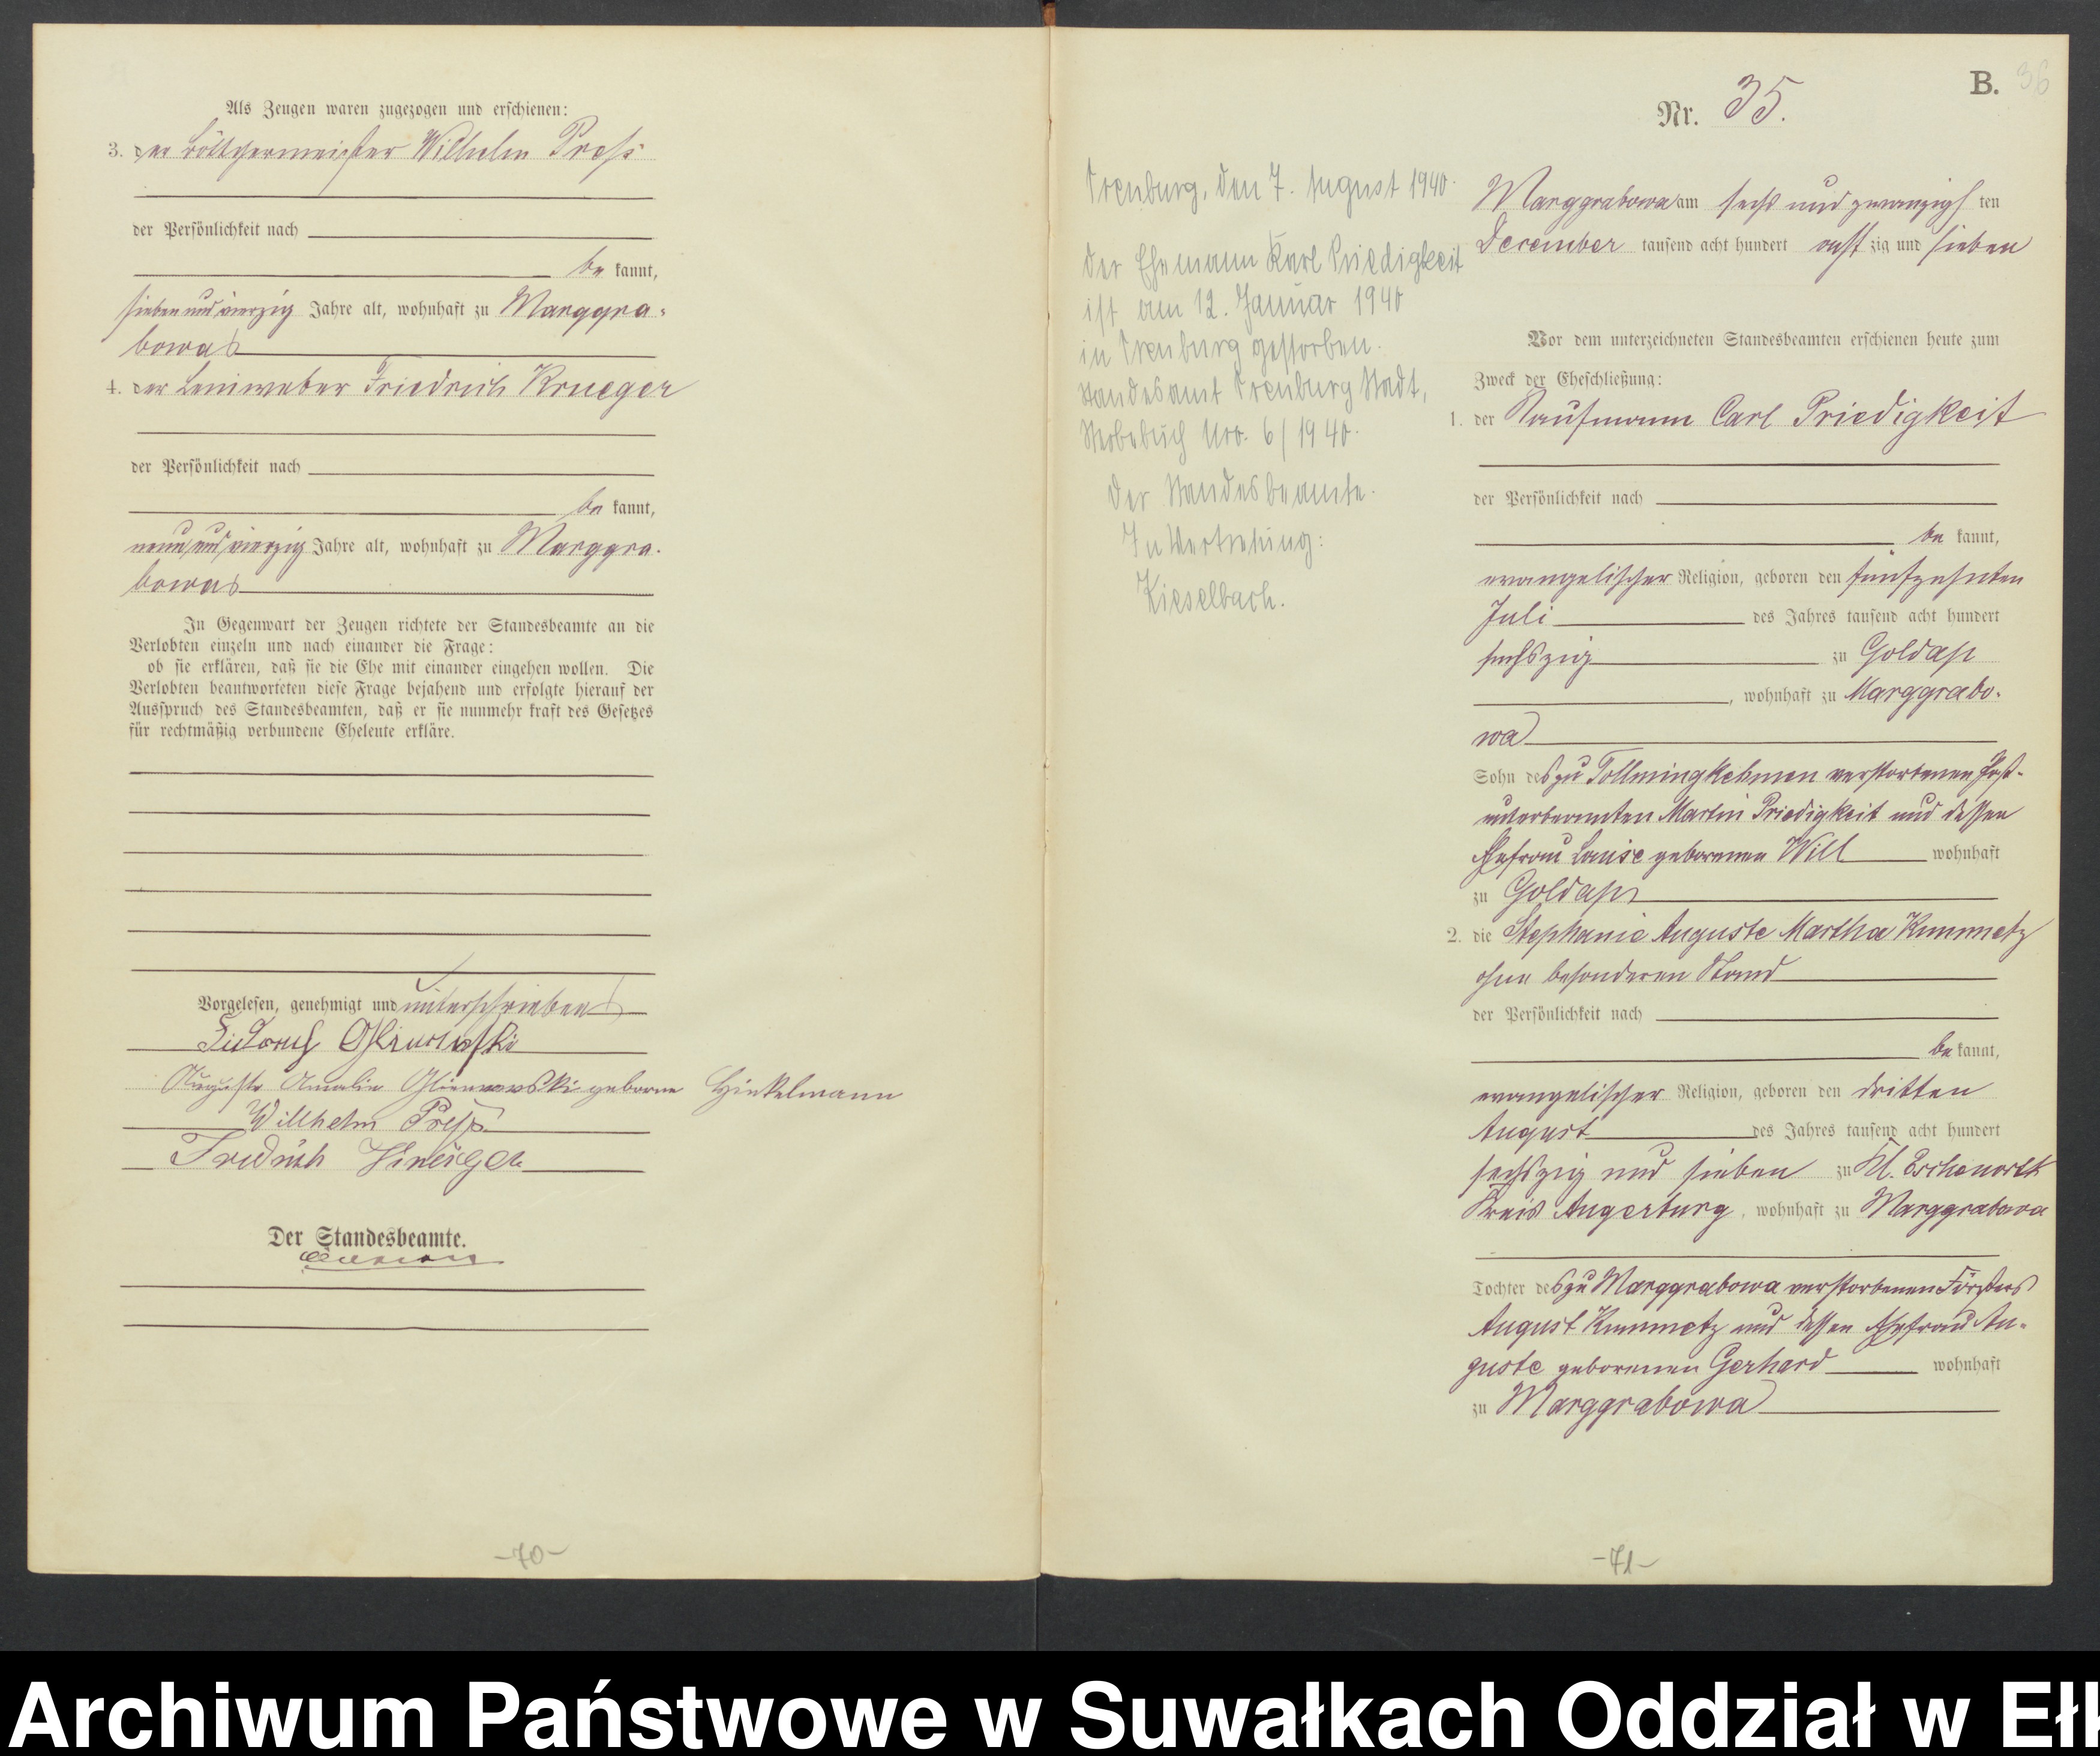 Als Zeugen waren zugezogen und erschienen:
3. der Böttchermeister Wilhelm Press
der Persönlichkeit nach
be kannt,
sieben und vierzig Jahre alt, wohnhaft zu Marggra-
bowa
4. der Leineweber Friedrich Krueger
der Persönlichkeit nach
be kannt,
neun und vierzig Jahre alt, wohnhaft zu Marggra-
bowa
In Gegenwart der Zeugen richtete der Standesbeamte an die
Verlobten einzeln und nach einander die Frage:
ob sie erklären, daß sie die Ehe mit einander eingehen wollen. Die
Verlobten beantworteten diese Frage bejahend und erfolgte hierauf der
Ausspruch des Standesbeamten, daß er sie nunmehr kraft des Gesetzes
für rechtmäßig verbundene Eheleute erkläre.
Vorgelesen, genehmigt und unterschrieben
Auguste Amalie geborne Hinkelmann
Willhelm Press
Der Standesbeamte.
-70-
B. 36
Nr. 35.
Treuburg, den 7. August 1940.
Der Ehemann Karl Priedigkeit
ist am 12. Januar 1940
in Treuburg gestorben.
Standesamt Treuburg Stadt,
Sterbebuch Nro. 6/1940.
Der Standesbeamte.
In Vertretung:
Kieselbach.
Marggrabowa am sechs und zwanzigs ten
December tausend acht hundert acht zig und sieben
Vor dem unterzeichneten Standesbeamten erschienen heute zum
Zweck der Eheschließung:
1. der Kaufmann Carl Priedigkeit
der Persönlichkeit nach
be kannt,
evangelischer Religion, geboren den fünfzehnten
Juli des Jahres tausend acht hundert
sechszig zu Goldap
, wohnhaft zu Marggrabo-
wa
Sohn des zu Tollmingkehmen verstorbenen Post-
unterbeamten Martin Priedigkeit und dessen
Ehefrau Louise geborenen Will wohnhaft
zu Goldap
2. die Stephanie Auguste Martha Kummetz
ohne besonderen Stand
der Persönlichkeit nach
be kannt,
evangelischer Religion, geboren den dritten
August des Jahres tausend acht hundert
sechszig und sieben zu Kl.
Kreis Angerburg, wohnhaft zu Marggrabowa
Tochter des zu Marggrabowa verstorbenen Försters
August Kummetz und dessen Ehefrau Au-
guste geborenen Gerhard wohnhaft
zu Marggrabowa
-71-
Archiwum Państwowe w Suwałkach Oddział w Ełk